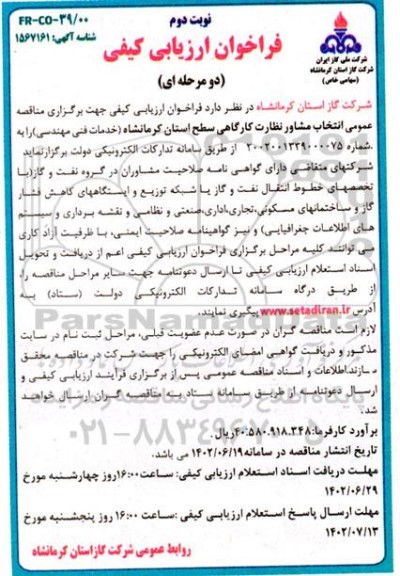 FR-CO-39/00
شناسه آگهی: ۱۵۶۷۱۶۱
نوبت دوم
فراخوان ارزیابی کیفی
(دو مرحله ای)
شرکت ملی گاز ایران
شرکت گاز استان کرمانشاه
(سهامی خاص)
شرکت گاز استان کرمانشاه در نظر دارد فراخوان ارزیابی کیفی جهت برگزاری مناقصه
عمومی انتخاب مشاور نظارت کارگاهی سطح استان کرمانشاه (خدمات فنی مهندسی) را به
.شماره ۲۰۰۲۰۰۱۳۳۹۰۰۰۰۷۵ از طریق سامانه تدارکات الکترونیکی دولت برگزار نماید.
شرکتهای متقاضی دارای گواهی نامه صلاحیت مشاوران در گروه نفت و گاز(با
تخصصهای خطوط انتقال نفت و گاز یا شبکه توزیع و ایستگاههای کاهش فشار
گاز و ساختمانهای مسکونی،تجاری،اداری،صنعتی و نظامی و نقشه برداری و سیستم
های اطلاعات جغرافیایی) و نیز گواهینامه صلاحیت ایمنی، با ظرفیت آزاد کاری
می توانند کلیه مراحل برگزاری فراخوان ارزیابی کیفی اعم از دریافت و تحویل
اسناد استعلام ارزیابی کیفی تا ارسال دعوتنامه جهت سایر مراحل مناقصه را،
از طریق درگاه سامانه تدارکات الکترونیکی دولت (ستاد) به
آدرس www.setadiran.ir پیگیری نمایند.
لازم است مناقصه گران در صورت عدم عضویت قبلی، مراحل ثبت نام در سایت
مذکور و دریافت گواهی امضای الکترونیکی را جهت شرکت در مناقصه محقق
سازند.اطلاعات و اسناد مناقصه عمومی پس از برگزاری فرآیند ارزیابی کیفی و
ارسال دعوتنامه از طریق سامانه ستاد به مناقصه گران ارسال خواهد
شد.
برآورد کارفرما: ۴۰.۵۸۰.۹۱۸.۳۴۸ریال
تاریخ انتشار مناقصه در سامانه ۱۴۰۲/۰۶/۱۹ می باشد.
مهلت دریافت اسناد استعلام ارزیابی کیفی: ساعت ۱۶:۰۰روز چهارشنبه مورخ
۱۴۰۲/۰۶/۲۹
مهلت ارسال پاسخ استعلام ارزیابی کیفی :ساعت ۱۶:۰۰ روز پنجشنبه مورخ
۱۴۰۲/۰۷/۱۳
روابط عمومی شرکت گاز استان کرمانشاه